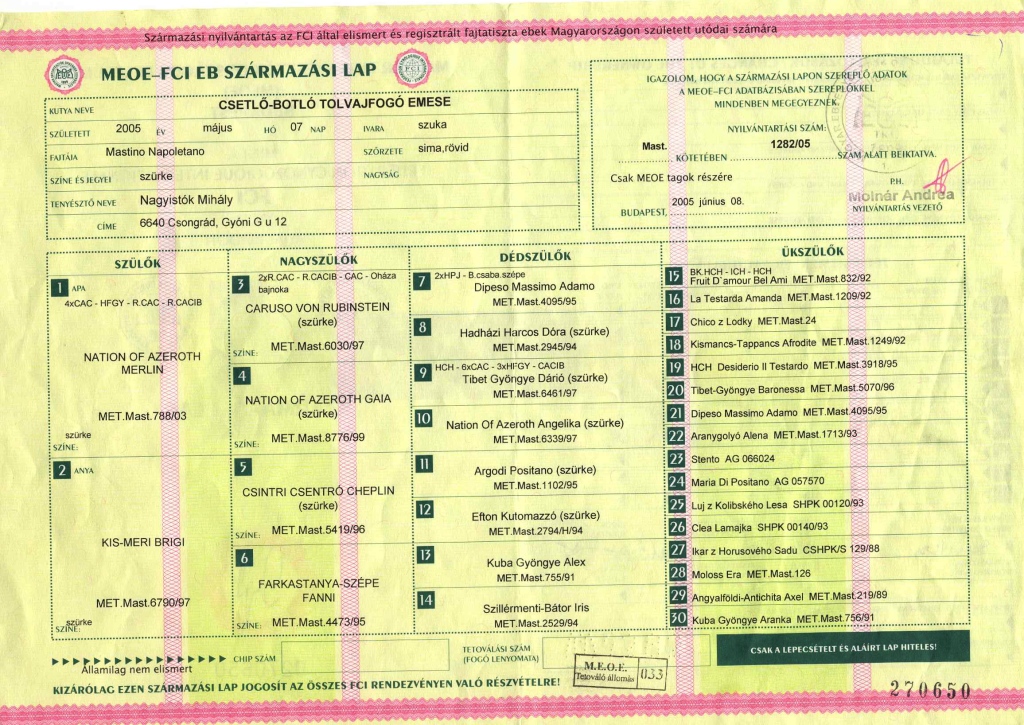 Származási nyilvántartás az FCI által elismert és regisztrált fajtatiszta ebek Magyarországon született utódai számára
MEOE–FCI EB SZÁRMAZÁSI LAP
KUTYA NEVE CSETLŐ-BOTLÓ TOLVAJFOGÓ EMESE
SZÜLETETT 2005 ÉV május HÓ 07 NAP IVARA szuka
FAJTÁJA Mastino Napoletano SZŐRZETE sima,rövid
SZÍNE ÉS JEGYEI szürke NAGYSÁG
TENYÉSZTŐ NEVE Nagyistók Mihály
CÍME 6640 Csongrád, Gyóni G u 12
IGAZOLOM, HOGY A SZÁRMAZÁSI LAPON SZEREPLŐ ADATOK
A MEOE-FCI ADATBÁZISÁBAN SZEREPLŐKKEL
MINDENBEN MEGEGYEZNEK.
NYILVÁNTARTÁSI SZÁM:
Mast. KÖTETÉBEN 1282/05 SZÁM ALATT BEIKTATVA.
Csak MEOE tagok részére
P.H.
Molnár Andrea
BUDAPEST, 2005 június 08. NYILVÁNTARTÁS VEZETŐ
SZÜLŐK
1 APA
4xCAC - HFGY - R.CAC - R.CACIB
NATION OF AZEROTH
MERLIN
MET.Mast.788/03
szürke
SZÍNE:
2 ANYA
KIS-MERI BRIGI
MET.Mast.6790/97
szürke
SZÍNE:
NAGYSZÜLŐK
3 2xR.CAC - R.CACIB - CAC - Oháza
bajnoka
CARUSO VON RUBINSTEIN
(szürke)
SZÍNE: MET.Mast.6030/97
4
NATION OF AZEROTH GAIA
(szürke)
SZÍNE: MET.Mast.8776/99
5
CSINTRI CSENTRÓ CHEPLIN
(szürke)
SZÍNE: MET.Mast.5419/96
6
FARKASTANYA-SZÉPE
FANNI
SZÍNE: MET.Mast.4473/95
DÉDSZÜLŐK
7 2xHPJ - B.csaba.szépe
Dipeso Massimo Adamo
MET.Mast.4095/95
8 Hadházi Harcos Dóra (szürke)
MET.Mast.2945/94
9 HCH - 6xCAC - 3xHFGY - CACIB
Tibet Gyöngye Dárió (szürke)
MET.Mast.6461/97
10 Nation Of Azeroth Angelika (szürke)
MET.Mast.6339/97
11 Argodi Positano (szürke)
MET.Mast.1102/95
12 Efton Kutomazzó (szürke)
MET.Mast.2794/H/94
13 Kuba Gyöngye Alex
MET.Mast.755/91
14 Szillérmenti-Bátor Iris
MET.Mast.2529/94
ÜKSZÜLŐK
15 BK.HCH - ICH - HCH
Fruit D`amour Bel Ami MET.Mast.832/92
16 La Testarda Amanda MET.Mast.1209/92
17 Chico z Lodky MET.Mast.24
18 Kismancs-Tappancs Afrodite MET.Mast.1249/92
19 HCH Desiderio Il Testardo MET.Mast.3918/95
20 Tibet-Gyöngye Baronessa MET.Mast.5070/96
21 Dipeso Massimo Adamo MET.Mast.4095/95
22 Aranygolyó Alena MET.Mast.1713/93
23 Stento AG 066024
24 Maria Di Positano AG 057570
25 Luj z Kolibského Lesa SHPK 00120/93
26 Clea Lamajka SHPK 00140/93
27 Ikar z Horusového Sadu CSHPK/S 129/88
28 Moloss Era MET.Mast.126
29 Angyalföldi-Antichita Axel MET.Mast.219/89
30 Kuba Gyöngye Aranka MET.Mast.756/91
CHIP SZÁM
Államilag nem elismert
TETOVÁLÁSI SZÁM
(FOGÓ LENYOMATA)
CSAK A LEPECSÉTELT ÉS ALÁÍRT LAP HITELES!
M.E.O.E.
Tetováló állomás 033
KIZÁRÓLAG EZEN SZÁRMAZÁSI LAP JOGOSÍT AZ ÖSSZES FCI RENDEZVÉNYEN VALÓ RÉSZVÉTELRE!
270650